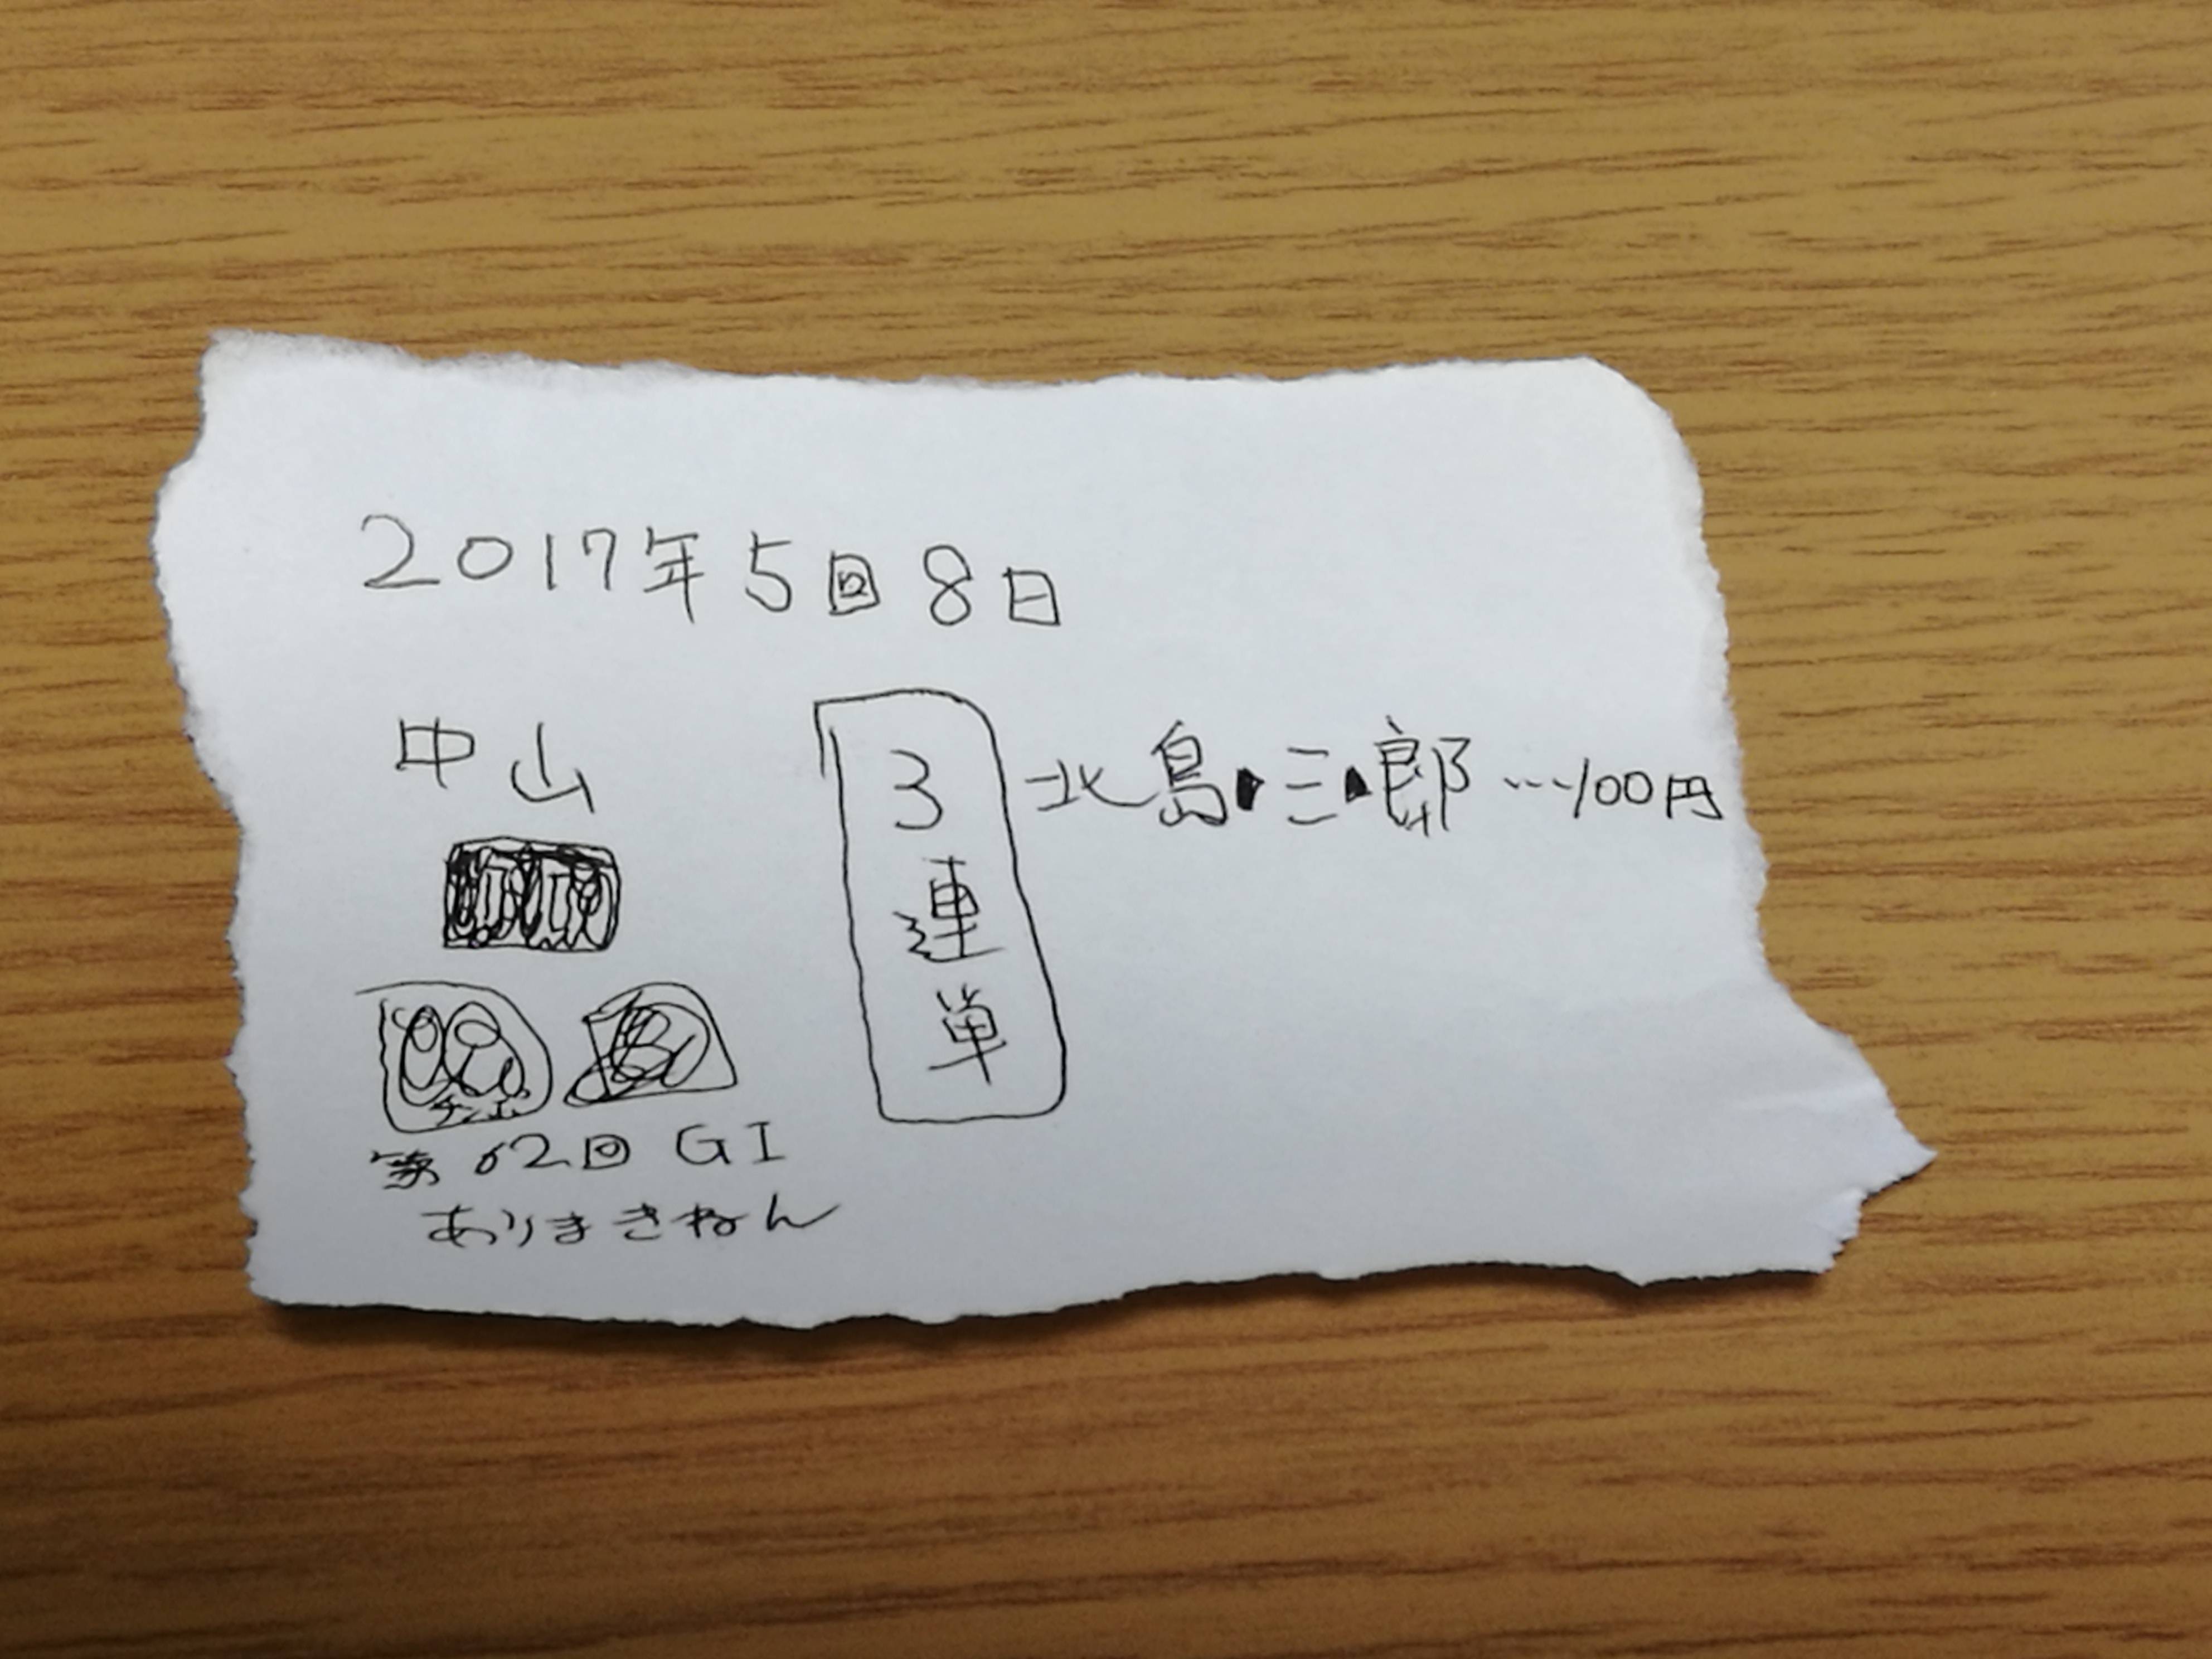 2017年5回8日
中山
3連単
北島・三・郎…100円
第62回 GI
ありまきねん